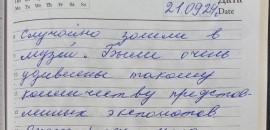 Дата
21.09.24, Date
Случайно зашли в
музей. Были очень
удивлены такому
количеству представ-
ленных экспонатов.